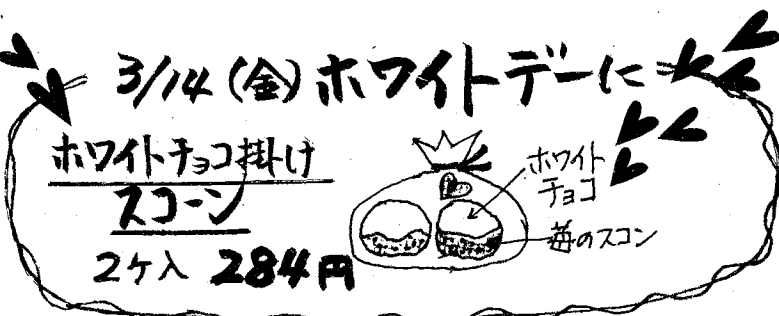 3/14(金)ホワイトデーに
ホワイトチョコ掛け
スコーン
2ケ入 284円
ホワイト
チョコ
苺のスコン